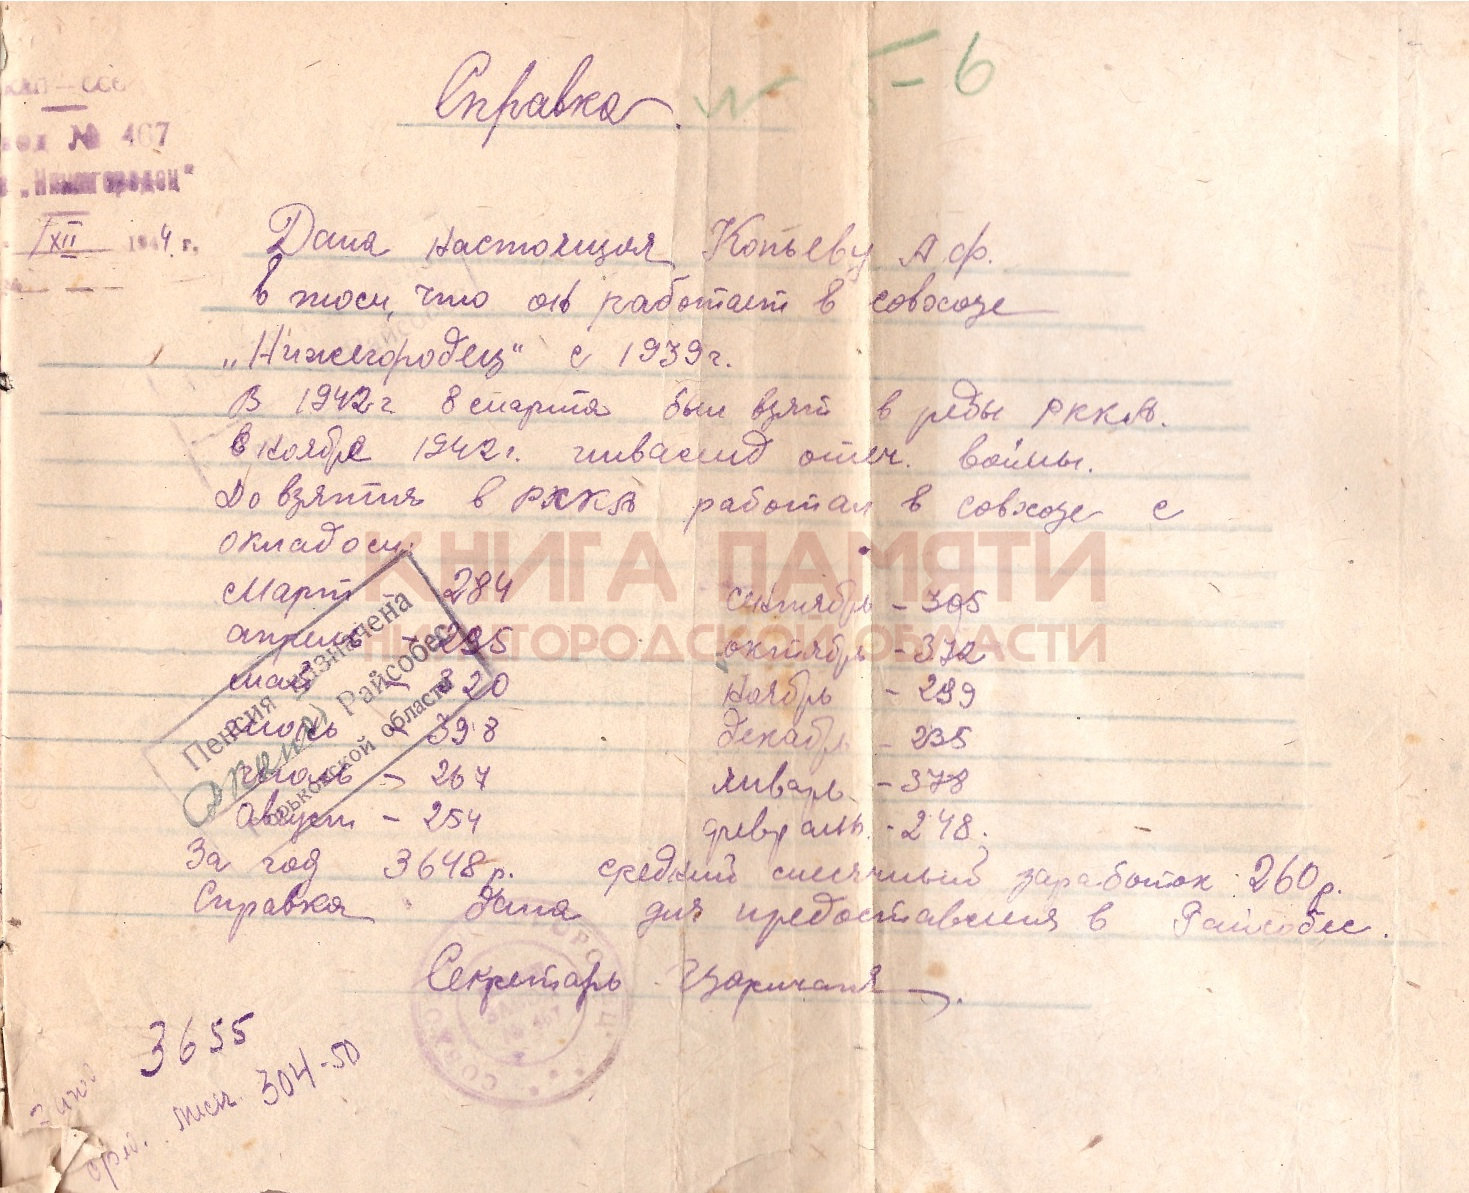 Справка.
№ - 6
№ 467
„Нижегородец"
XII 1944 г.
Дана настоящая Копьеву А.Ф.
в том, что он работает в совхозе
„Нижегородец" с 1939 г.
В 1942 г 8 марта был взят в ряды РККА.
в ноябре 1942 г. инвалид отеч. войны.
До взятия в РККА работал в совхозе с
окладом:
КНИГА ПАМЯТИ
НИЖЕГОРОДСКОЙ ОБЛАСТИ
Март - 284 сентябрь - 305
апрель - 295 октябрь - 372
май - 320 ноябрь - 299
июнь - 398 декабрь - 235
июль - 267 январь - 378
август - 254 февраль - 248.
Пенсия назначена
Райсобес
Горьковской области
За год 3648 р. средний месячный заработок 260 р.
Справка дана для предоставления в Райсобес.
Секретарь
3655
304-50